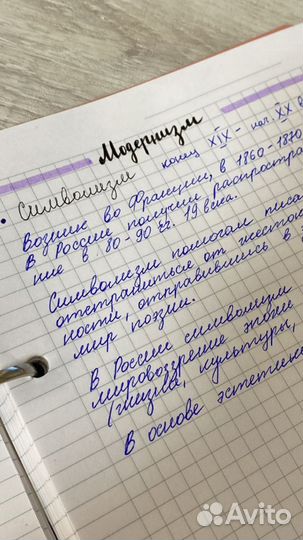 Модернизм
• Символизм конец XIX - нач. XX в
Возник во Франции, в 1860-1870
В России получил распростра
ние в 80-90 гг. 19 века.
Символизм помогал писа
отстраниться от жесток
ности, отправившись в
мир поэзии.
В России символизм
мировоззрение эпохи
(жизни, культуры,
В основе эстетик
Avito